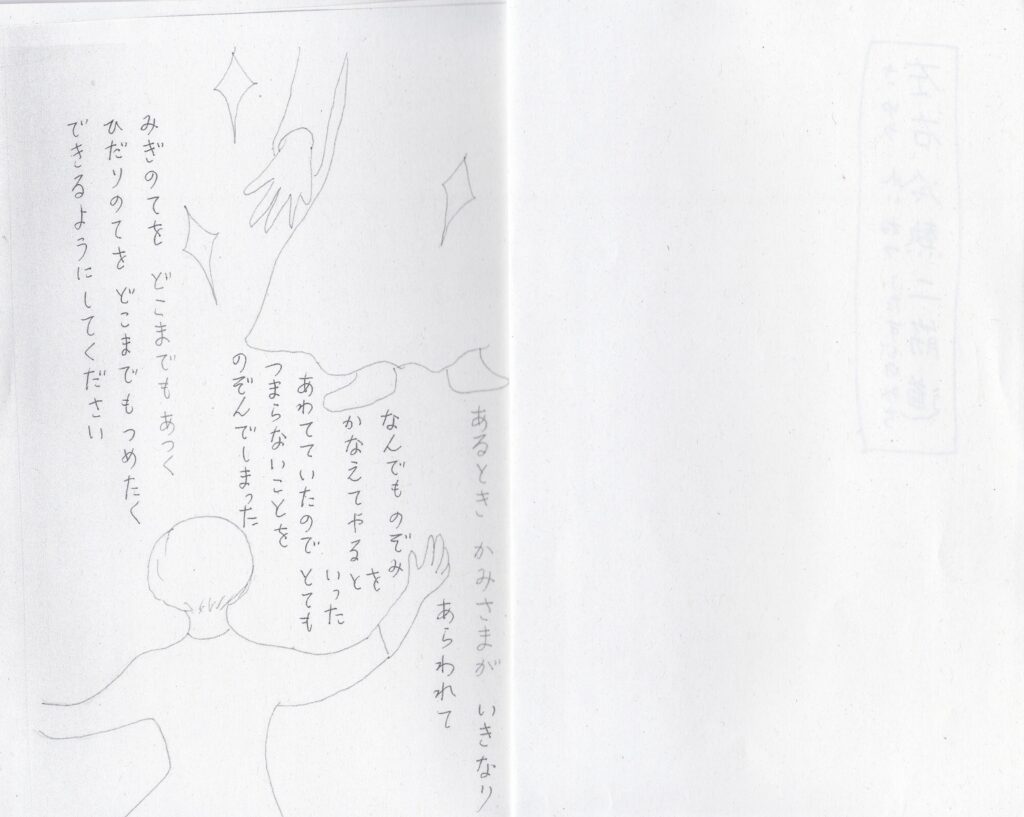 あるとき かみさまが いきなり
あらわれて
なんでも のぞみを
かなえてやると
いった
あわてていたので とても
つまらないことを
のぞんでしまった
みぎのてを どこまでもあつく
ひだりのてを どこまでもつめたく
できるようにしてください